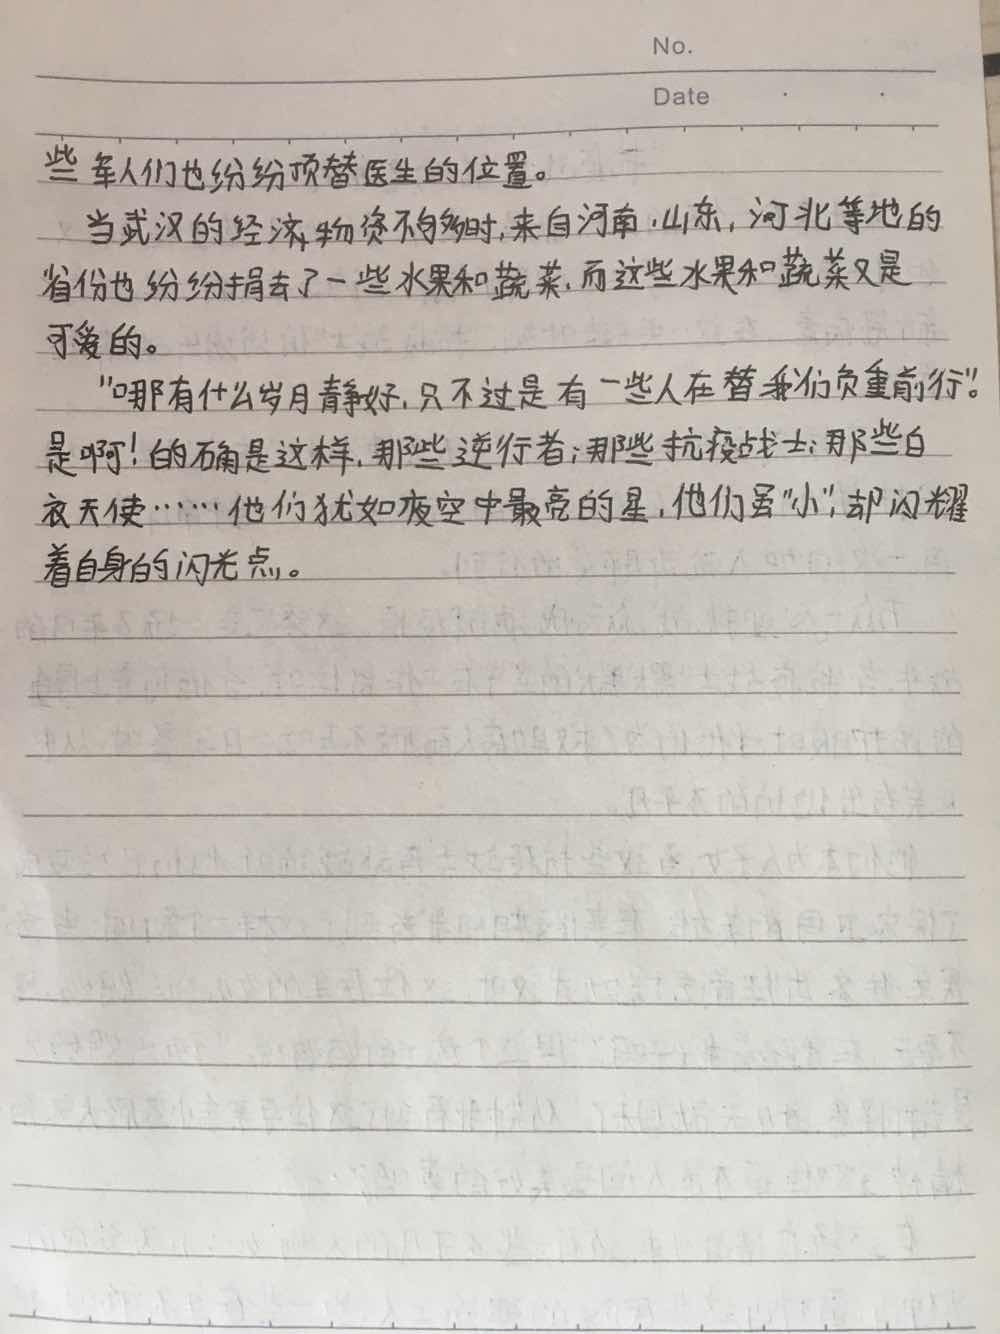 No.
Date
些军人们也纷纷顶替医生的位置。
当武汉的经济,物资不够多时,来自河南,山东,河北等地的
省份也纷纷捐去了一些水果和蔬菜,而这些水果和蔬菜又是
可爱的。
"哪有什么岁月静好,只不过是有一些人在替我们负重前行"。
是啊!的确是这样,那些逆行者;那些抗疫战士;那些白
衣天使……他们犹如夜空中最亮的星,他们虽"小",却闪耀
着自身的闪光点。